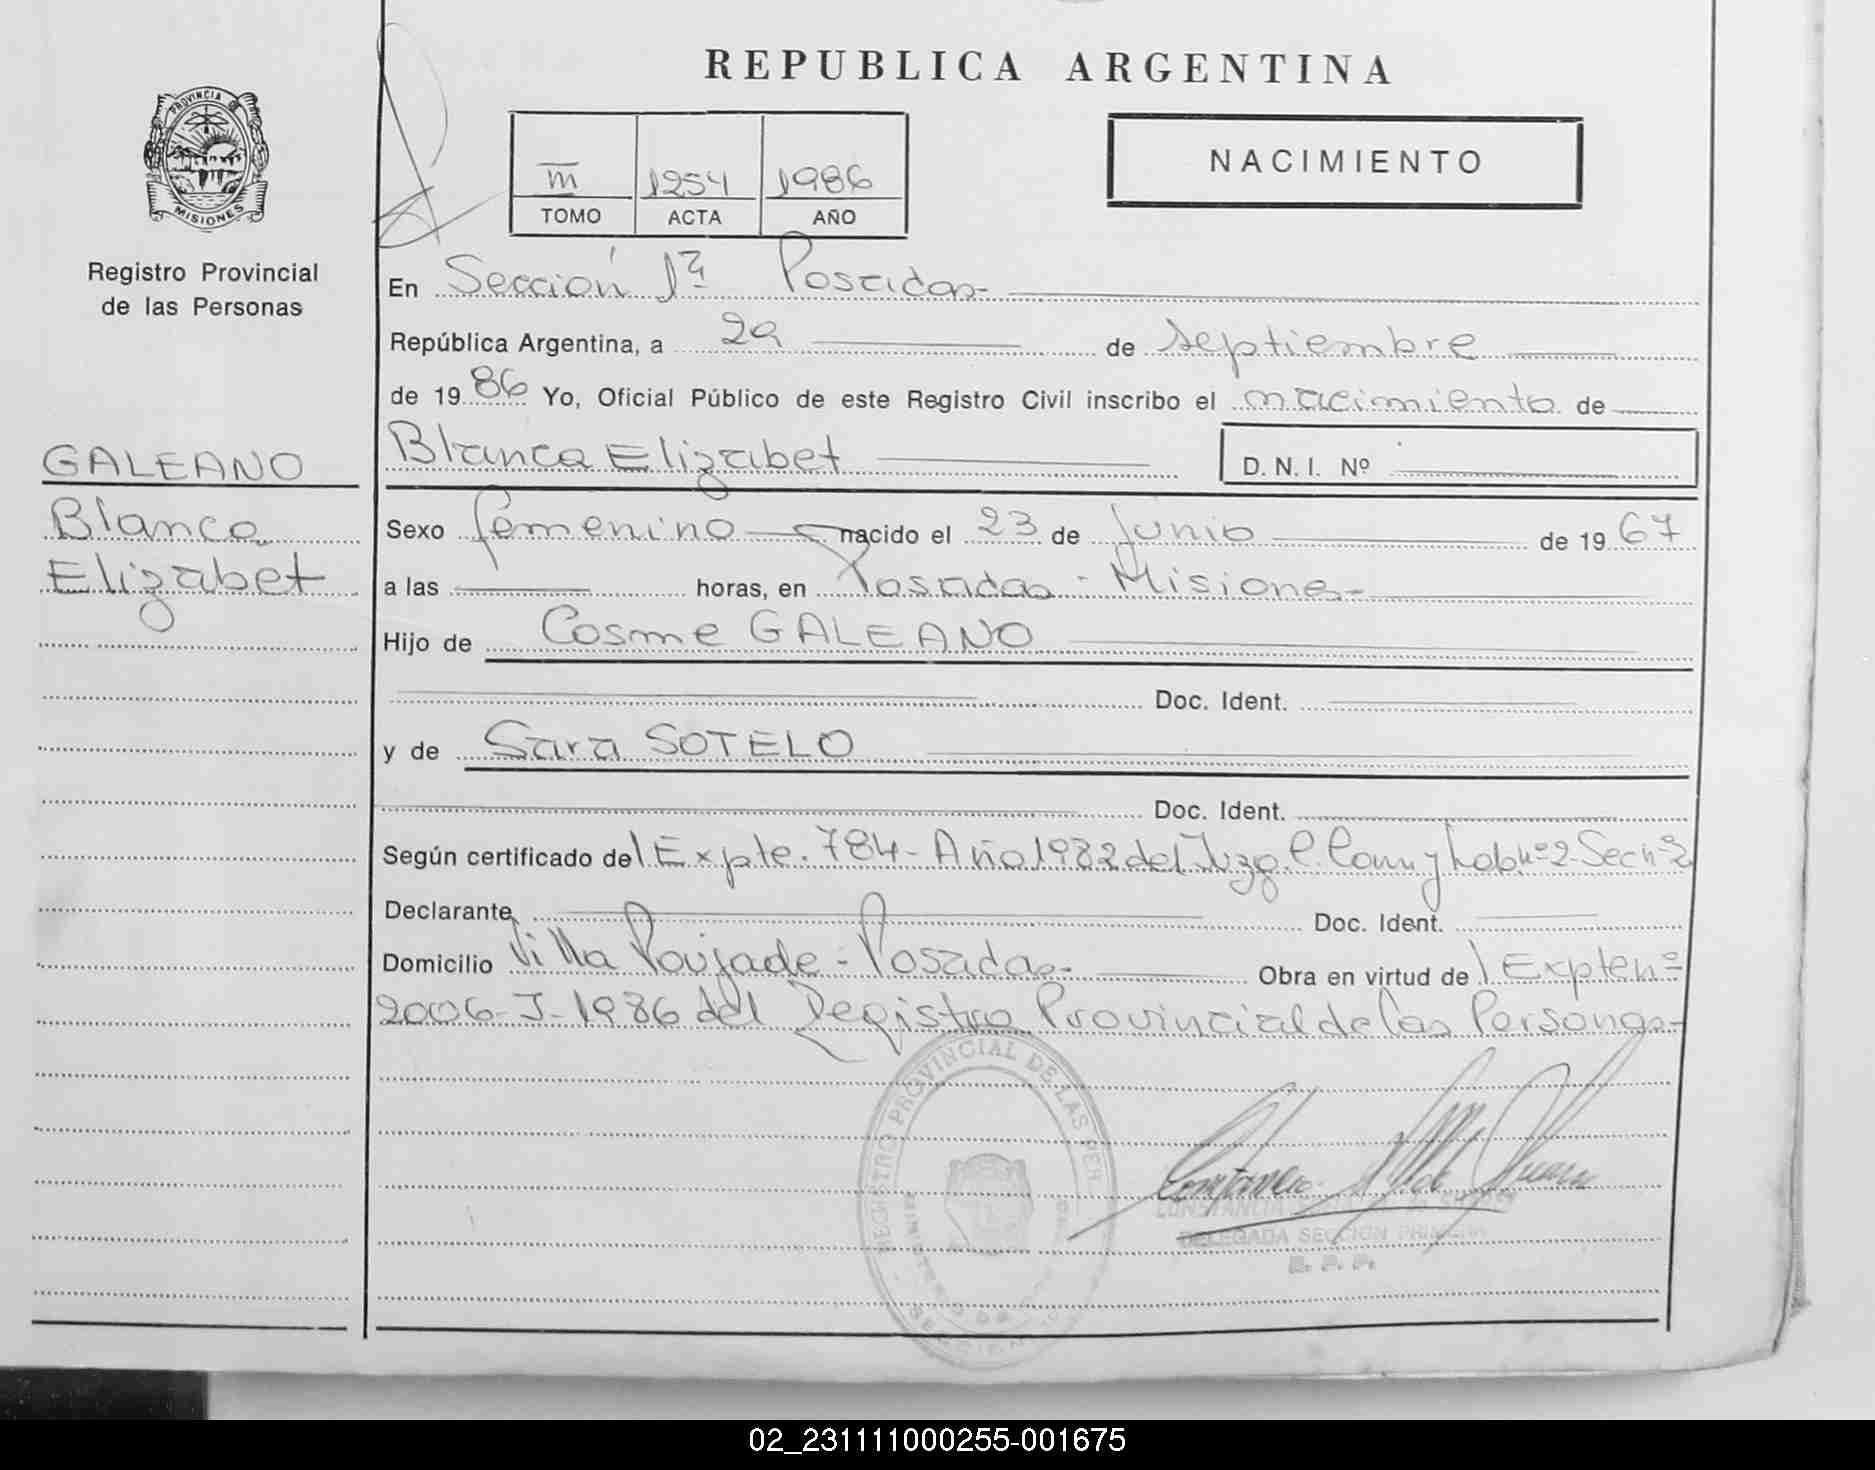 REPUBLICA ARGENTINA
PROVINCIA DE
MISIONES
Registro Provincial
de las Personas
NACIMIENTO
III 1254 1986
TOMO ACTA AÑO
En Sección 1ª Posadas
República Argentina, a 29 de septiembre
de 1986 Yo, Oficial Público de este Registro Civil inscribo el nacimiento de
GALEANO
Blanca Elizabet D. N. I. Nº
Blanca
Elizabet
Sexo femenino nacido el 23 de Junio de 1967
a las horas, en Posadas - Misiones
Hijo de Cosme GALEANO
Doc. Ident.
y de Sara SOTELO
Doc. Ident.
Según certificado del Expte. 784 - Año 1982 del Juzg. C. Com y Lab. nº 2 Sec nº 2
Declarante Doc. Ident.
Domicilio Villa Poujade - Posadas Obra en virtud del Expte nº
2006-J-1986 del Registro Provincial de las Personas
REGISTRO PROVINCIAL DE LAS PER
CONSTANCIA
DELEGADA SECCION PRIMERA
R. P. P.
02_231111000255-001675